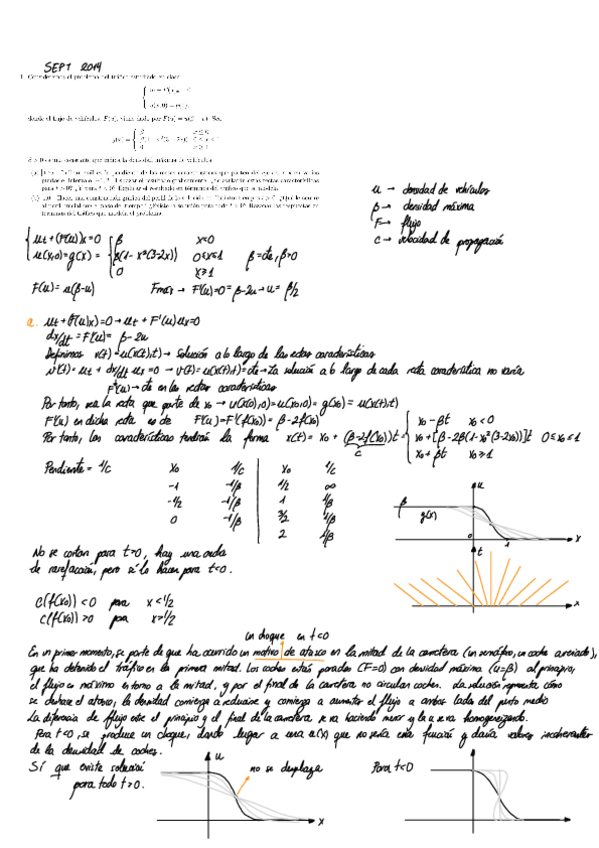 SEPT 2014
u → densidad de vehículos
β → densidad máxima
F → flujo
c → velocidad de propagación
u_t + (F(u))_x = 0
u(x,0) = g(x) = β x<0
β(1 - x²(3-2x)) 0≤x≤1 β = cte, β>0
0 x≥1
F(u) = u(β-u) F_máx → F'(u)=0 = β-2u → u = β/2
a. u_t + (F(u)_x) = 0 → u_t + F'(u)u_x = 0
dx/dt = F'(u) = β - 2u
Definimos v(t) = u(x(t),t) → solución a lo largo de las rectas características
v'(t) = u_t + dx/dt u_x = 0 → v(t) = u(x(t),t) = cte → La solución a lo largo de cada recta característica no varía
F'(u) → cte en las rectas características
Por tanto, sea la recta que parte de x₀ → u(x(0),0) = u(x₀,0) = g(x₀) = u(x(t),t)
F'(u) en dicha recta es de F'(u) = F'(f(x₀)) = β - 2f(x₀)
Por tanto, las características tendrán la forma x(t) = x₀ + (β-2f(x₀))t = x₀ - βt x₀<0
c
x₀ + [β - 2β(1-x₀²(3-2x₀))]t 0≤x₀≤1
x₀ + βt x₀≥1
Pendiente = 1/c x₀ 1/c x₀ 1/c
-1 -1/β 1/2 ∞
-1/2 -1/β 1 1/β
0 -1/β 3/2 1/β
2 1/β
u
β
g(x)
0 1 x
t
x
No se cortan para t>0, hay una onda
de rarefacción, pero sí lo hacen para t<0.
c(f(x₀)) < 0 para x<1/2
c(f(x₀)) > 0 para x>1/2
un choque en t<0
En un primer momento, se parte de que ha ocurrido un motivo de atasco en la mitad de la carretera (un semáforo, un coche averiado),
que ha detenido el tráfico en la primera mitad. Los coches están parados (F=0) con densidad máxima (u=β) al principio,
el flujo es máximo entorno a la mitad, y por el final de la carretera no circulan coches. La solución representa cómo
se deshace el atasco, la densidad comienza a reducirse y comienza a aumentar el flujo a ambos lados del punto medio
La diferencia de flujo entre el principio y el final de la carretera se va haciendo menor y la u se va homogeneizando.
Para t<0, se produce un choque, dando lugar a una u(x) que no sería una función y daría valores incoherentes
de la densidad de coches.
Sí que existe solución
para todo t>0.
u
no se desplaza
x
Para t<0